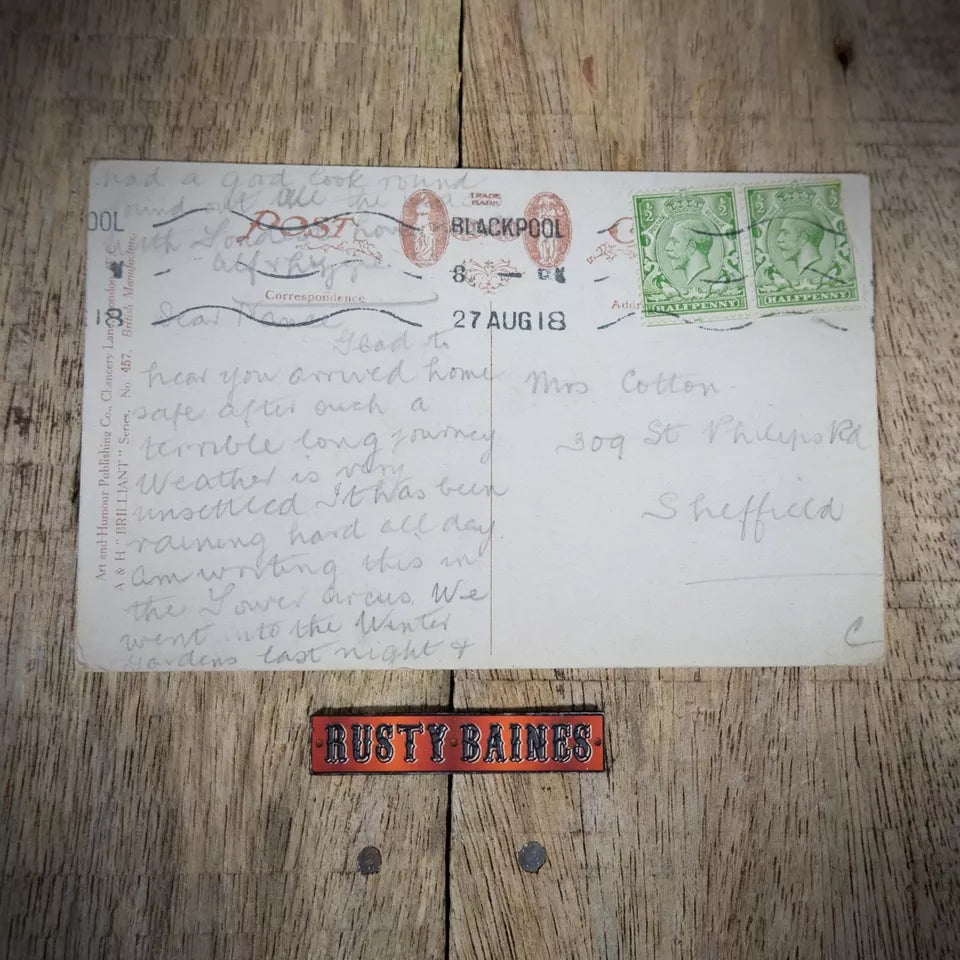 had a good look round
found out all the
with
Alf & Lizzie
POST
TRADE
MARK
OOL
BLACKPOOL
8
18
27 AUG 18
½
½
HALFPENNY
HALFPENNY
Correspondence
Addr
Art and Humour Publishing Co., Chancery Lane, London
British Manufacture
A & H "BRILLIANT" Series. No 457.
Dear
Glad to
hear you arrived home
safe after such a
terrible long journey
Weather is very
unsettled It has been
raining hard all day
am writing this in
the Tower circus. We
went into the Winter
Gardens last night &
Mrs Cotton.
309 St Philips Rd
Sheffield
C
RUSTY BAINES